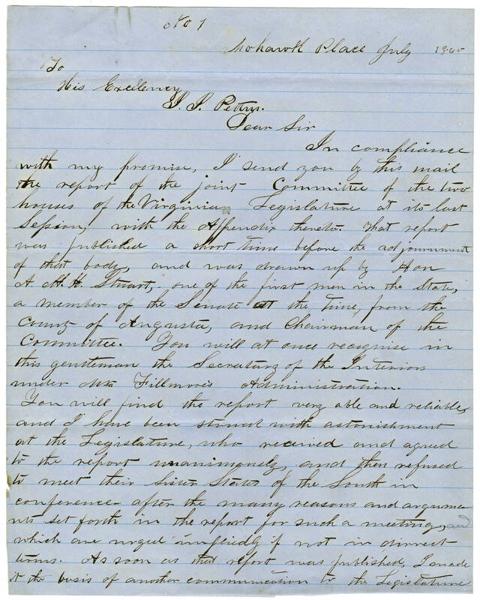 No 1
Mohawk Place July 1860
To
His Excellency
J. J. Pettus.
Dear Sir
In compliance
with my promise, I send you by this mail
the report of the joint Committee of the two
houses of the Virginia Legislature at its last
Session, with the Appendix thereto. That report
was published a short time before the adjournment
of that body, and was drawn up by Hon
A. H. H. Stuart, one of the first men in the State,
a member of the Senate at the time, from the
county of Augusta, and Chairman of the
Committee. You will at once recognise in
this gentleman the Secretary of the Interior
under Mr Fillmore's Administration.
You will find the report very able and reliable,
and I have been struck with astonishment
at the Legislature, who received and agreed
to the report unanimously, and then refused
to meet their sister States of the South in
conference after the many reasons and argume
nts set forth in the report for such a meeting, and
which are urged impliedly if not in direct
terms. As soon as that report was published, I made
it the basis of another communication to the Legislature